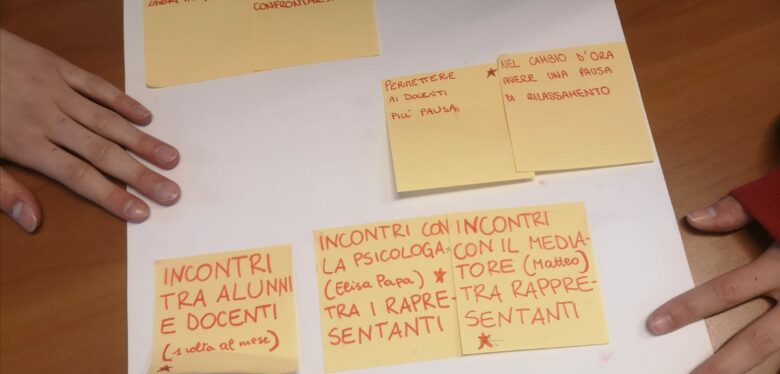 CONFRONTARSI
PERMETTERE
AI DOCENTI
PIÙ PAUSA
NEL CAMBIO D'ORA
AVERE UNA PAUSA
DI RILASSAMENTO
INCONTRI
TRA ALUNNI
E DOCENTI
(1 volta al mese)
INCONTRI CON
LA PSICOLOGA
(Elisa Papa)
TRA I RAPRE-
SENTANTI
INCONTRI
CON IL MEDIA-
TORE (Matteo)
TRA RAPPRE-
SENTANTI